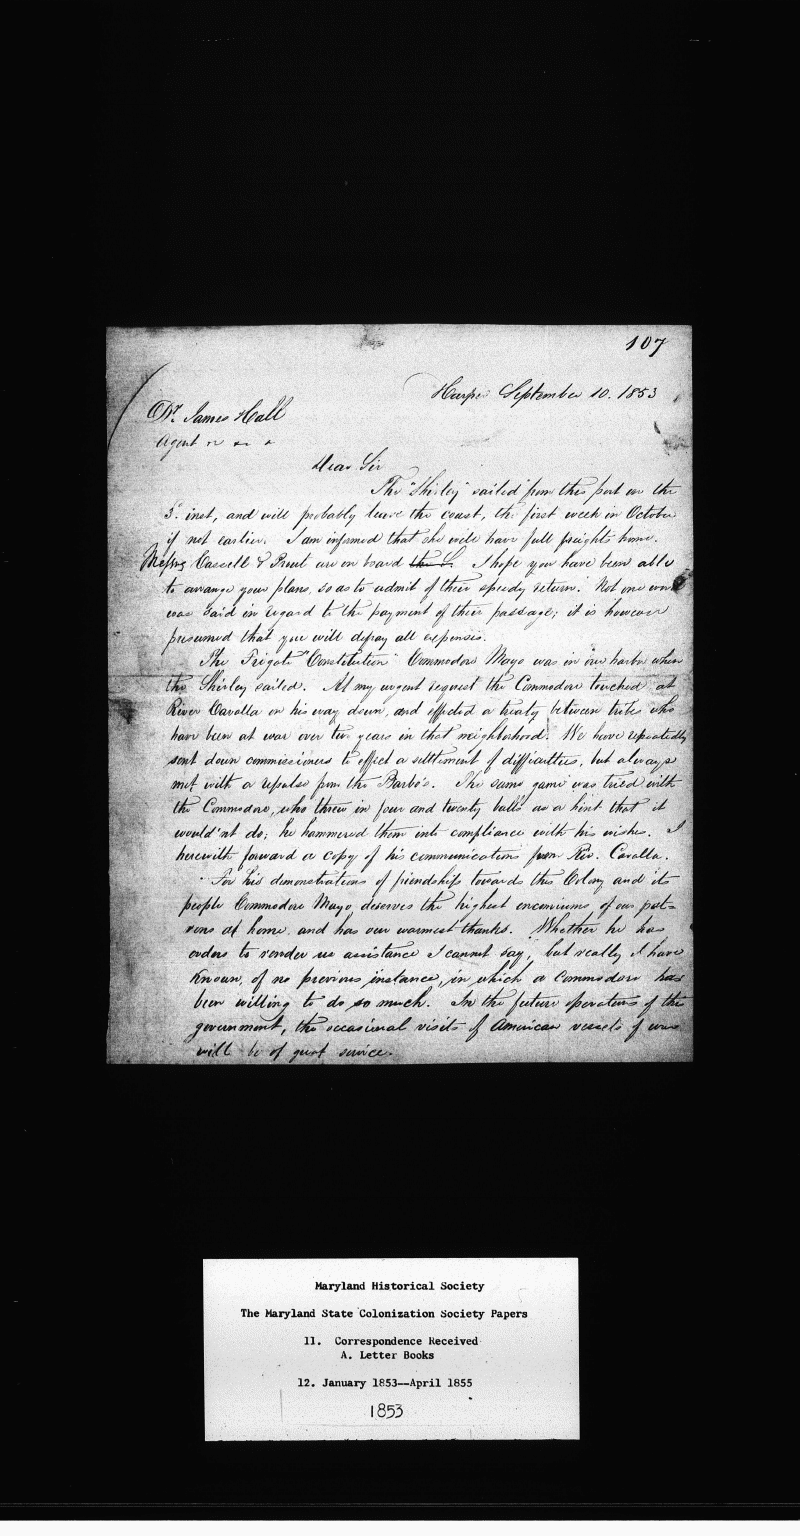 107
Harper September 10. 1853
Dr. James Hall
Agent
Dear Sir
The "Shirley" sailed from this port on the
3d. inst, and will probably leave the coast, the first week in October
if not earlier. I am informed that she will have full freights home.
Messrs Cassell & Prout are on board the S. I hope you have been able
to arrange your plans, so as to admit of their speedy return. Not one word
was said in regard to the payment of their passage; it is however
presumed that you will defray all expenses.
The Frigate "Constitution" Commodore Mayo was in our harbor when
the Shirley sailed. At my urgent request the Commodore touched at
River Cavalla on his way down, and effected a treaty between tribes who
have been at war over two years in that neighborhood. We have repeatedly
sent down commissioners to effect a settlement of difficulties, but always
met with a repulse from the Barbo's. The same game was tried with
the Commodore, who threw in four and twenty balls as a hint that it
would'nt do; he hammered them into compliance with his wishes. I
herewith forward a copy of his communications from Riv. Cavalla.
For his demonstrations of friendship towards this Colony and its
people Commodore Mayo deserves the highest encomiums of our pat-
rons at home, and has our warmest thanks. Whether he has
orders to render us assistance I cannot say, but really I have
known, of no previous instance, in which a commodore has
been willing to do so much. In the future operations of the
government, the occasional visits of American vessels of war
will be of great service.
Maryland Historical Society
The Maryland State Colonization Society Papers
11. Correspondence Received
A. Letter Books
12. January 1853--April 1855
1853